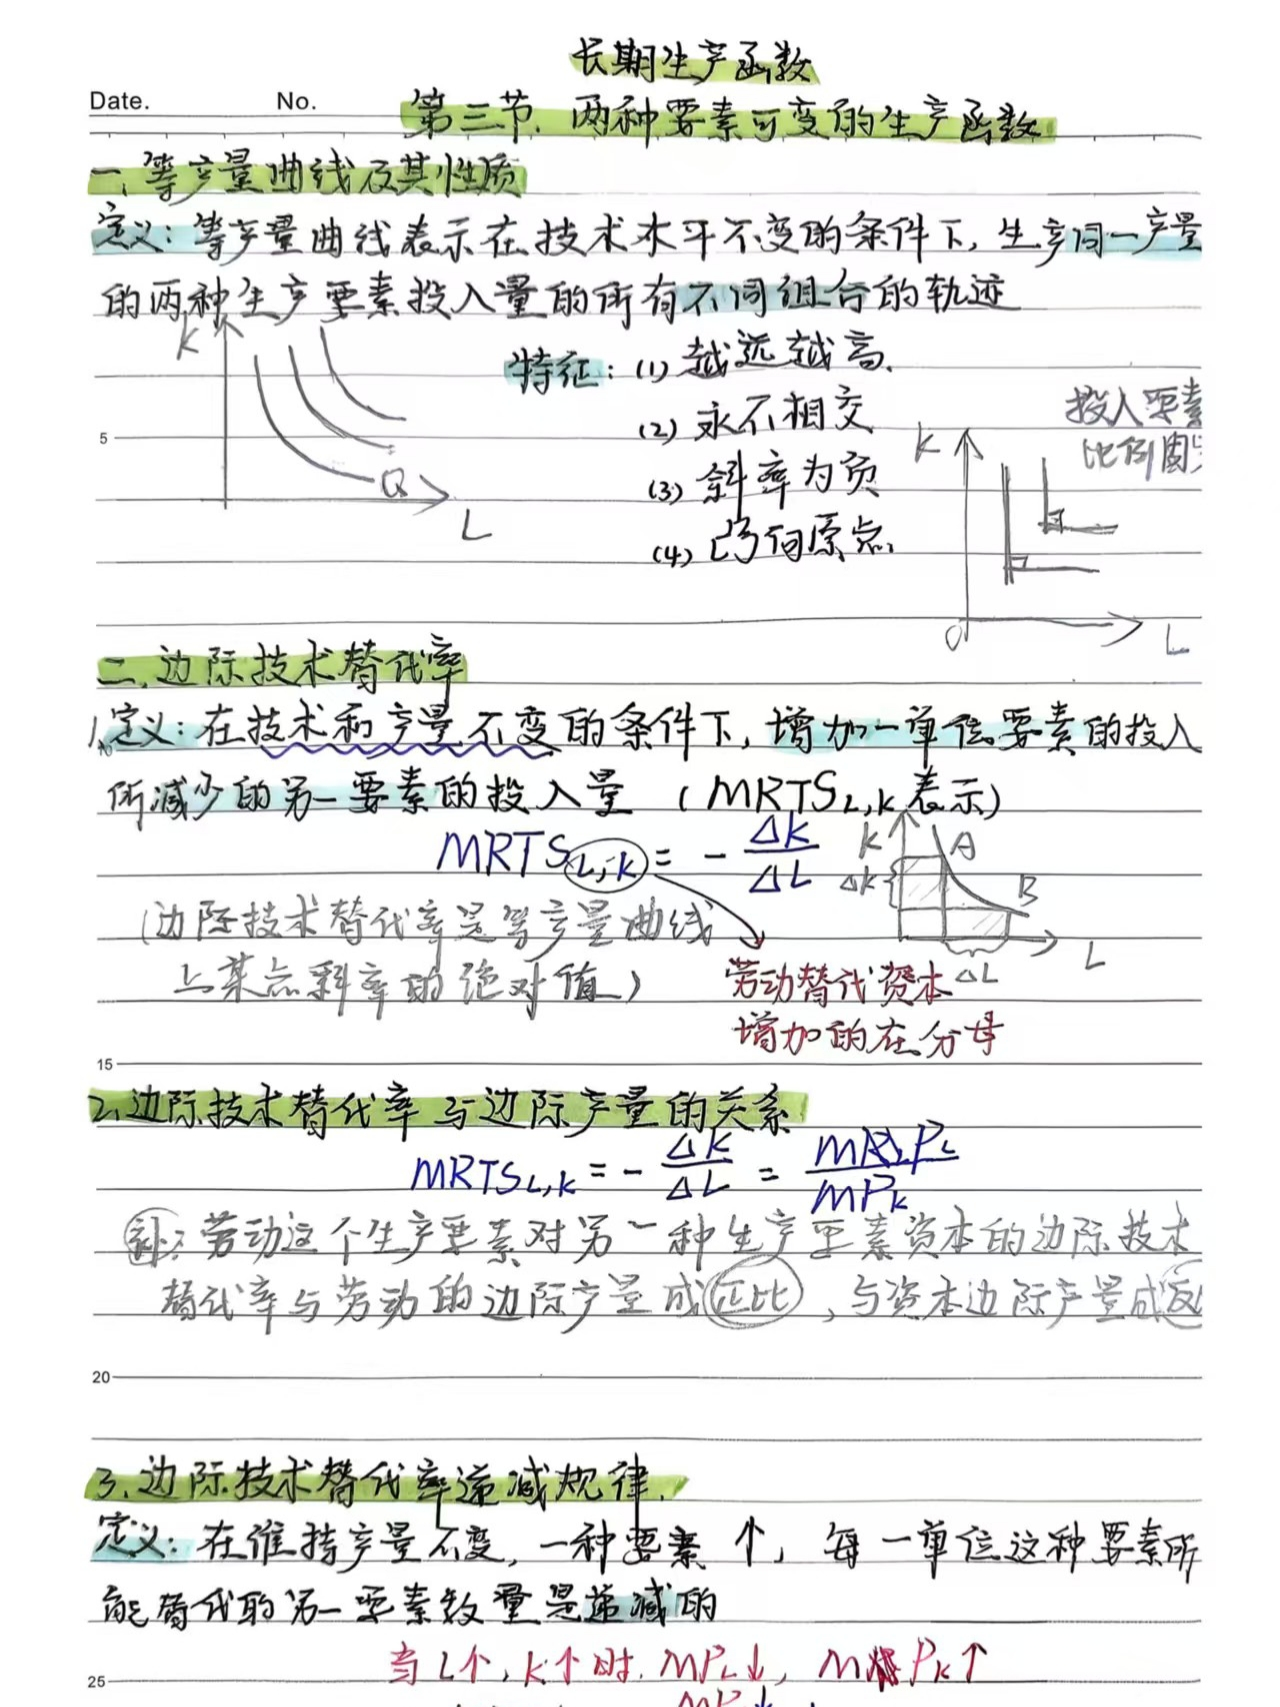 长期生产函数
Date. No.
第三节.两种要素可变的生产函数
一.等产量曲线及其性质
定义:等产量曲线表示在技术水平不变的条件下,生产同一产量
的两种生产要素投入量的所有不同组合的轨迹
K
特征:(1)越远越高.
(2)永不相交
(3)斜率为负
(4)凸向原点.
5
Q
L
投入要素
比例固
K
O
L
二.边际技术替代率
1.定义:在技术和产量不变的条件下,增加一单位要素的投入
10
所减少的另一要素的投入量(MRTSL,K表示)
MRTSL,K = - ΔK/ΔL
K
A
ΔK
B
L
ΔL
(边际技术替代率是等产量曲线
上某点斜率的绝对值)
劳动替代资本
增加的在分母
15
2.边际技术替代率与边际产量的关系
MRTSL,K = - ΔK/ΔL = MPL/MPK
补:劳动这个生产要素对另一种生产要素资本的边际技术
替代率与劳动的边际产量成正比,与资本边际产量成反
20
3.边际技术替代率递减规律.
定义:在维持产量不变,一种要素个,每一单位这种要素所
能替代的另一要素数量是递减的
当L个,K个时.MPL↓,MPK↑
25